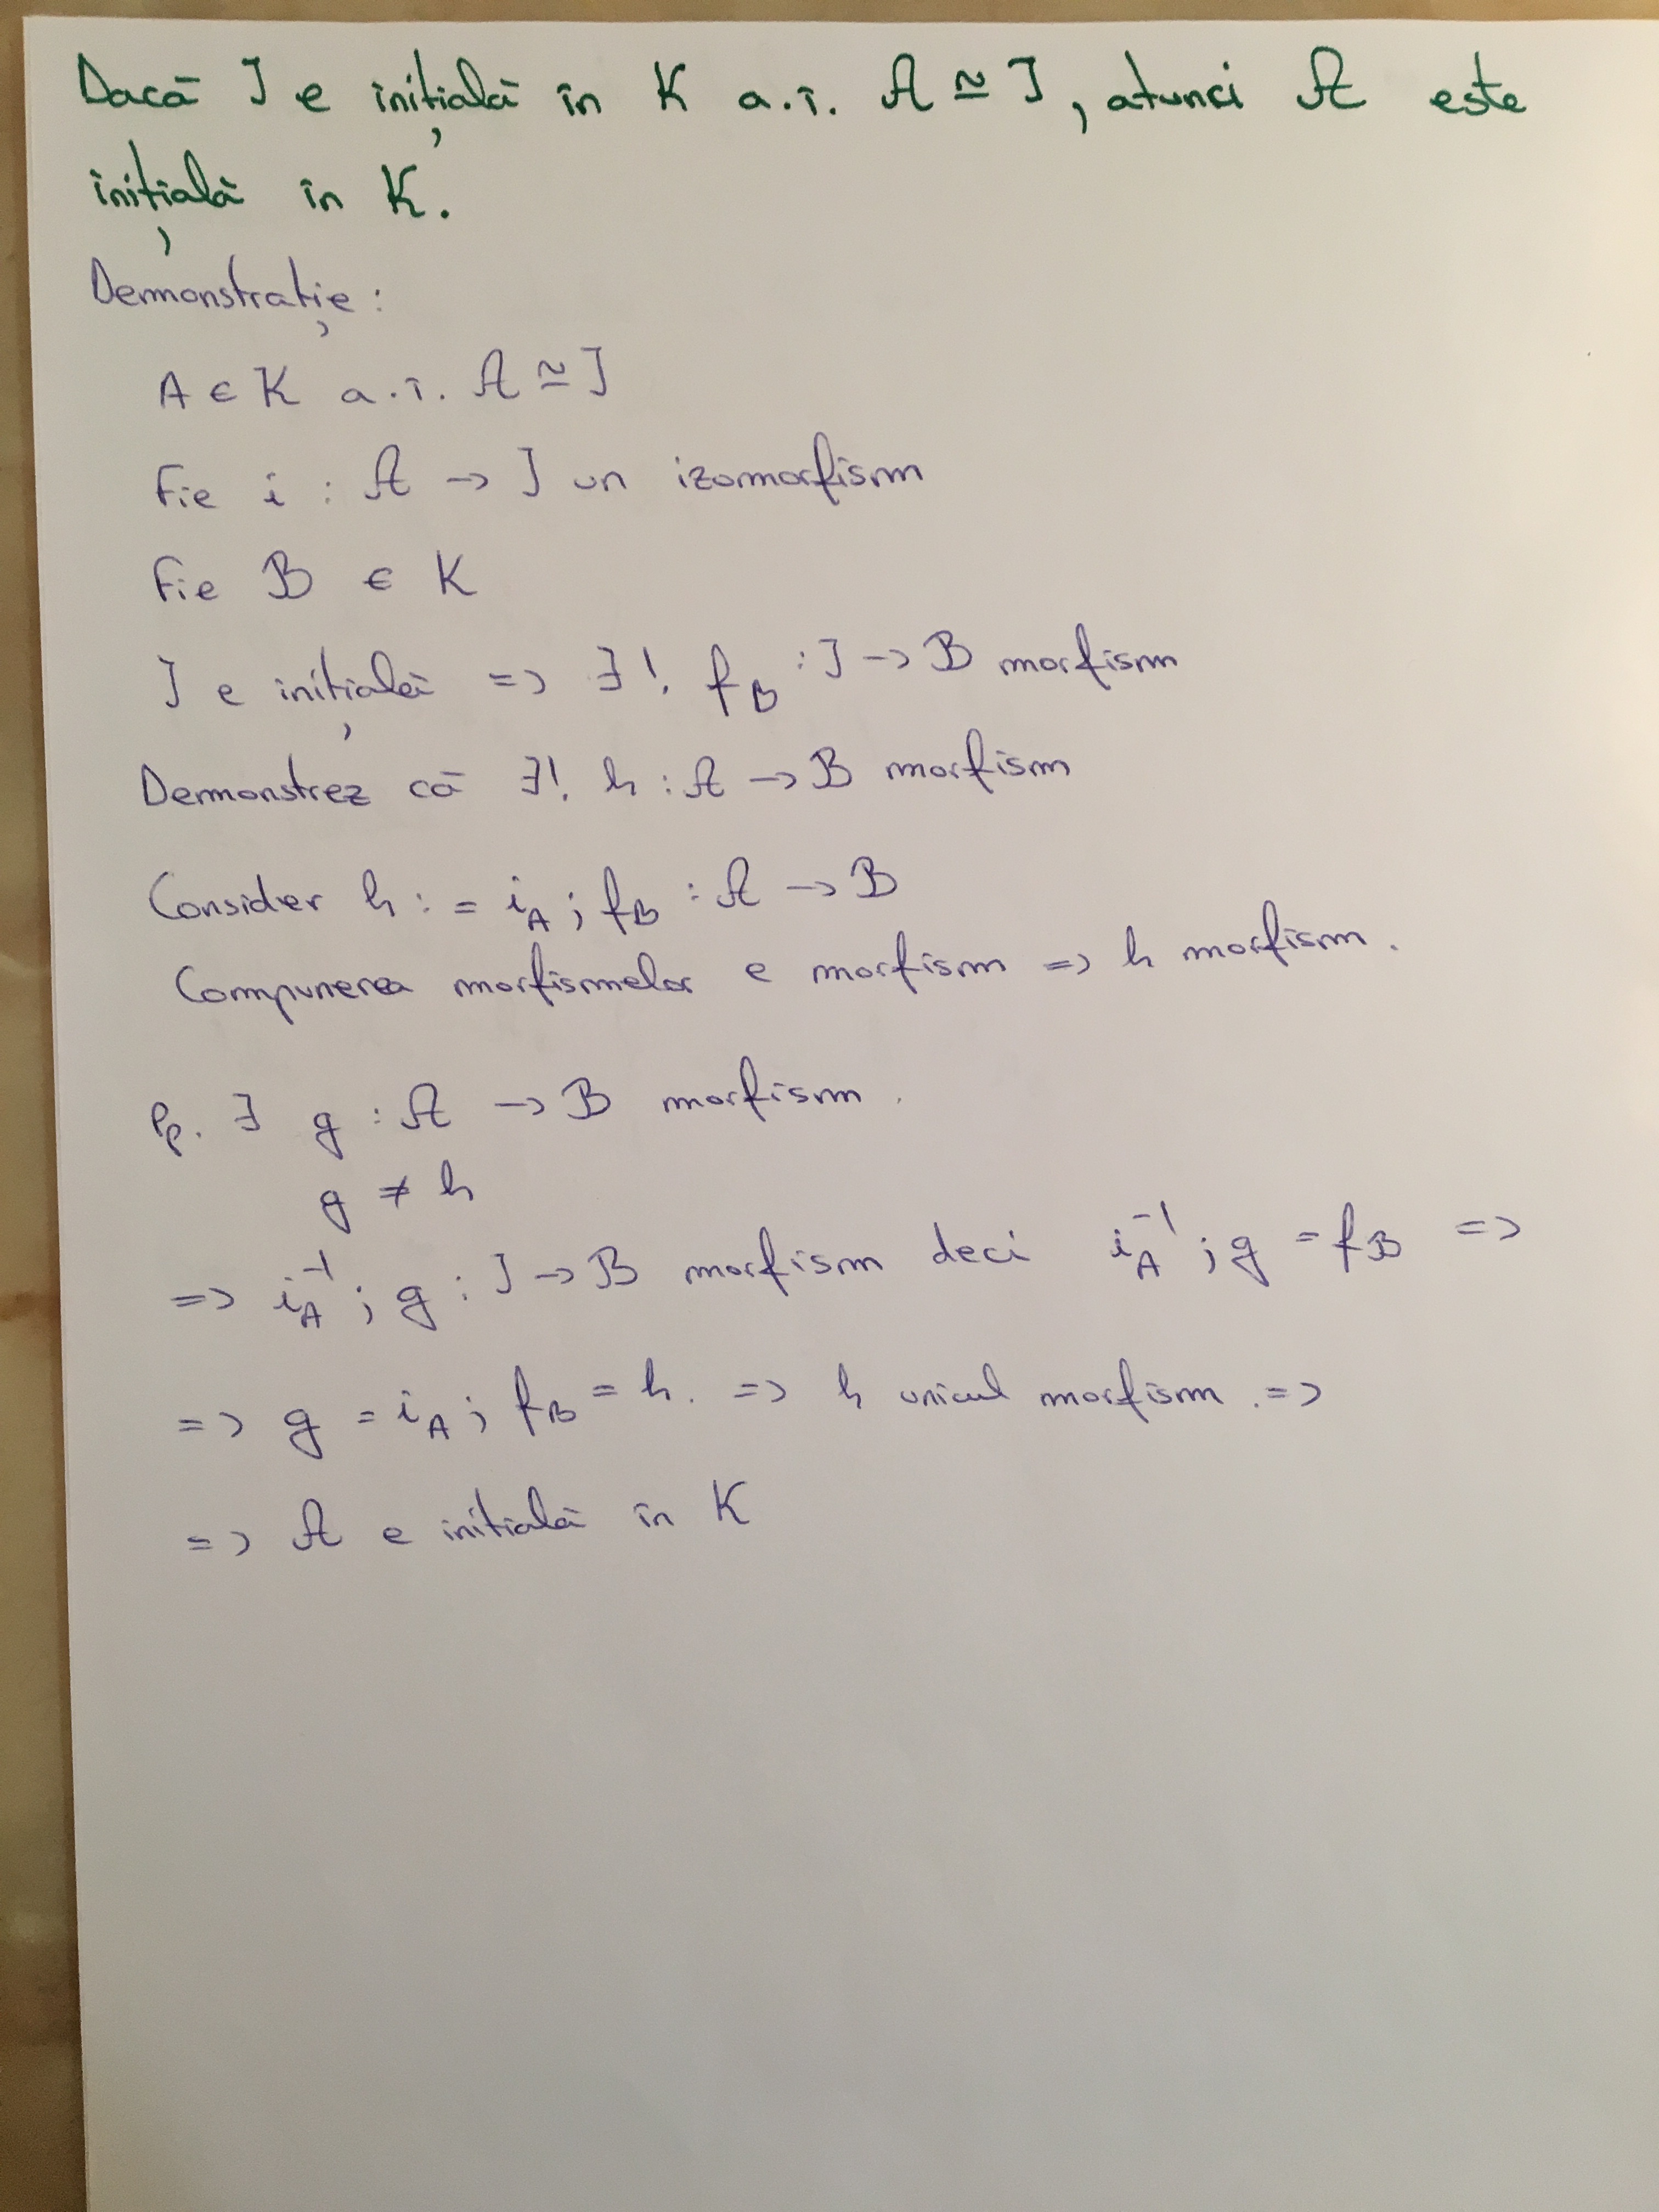 Dacă I e inițială în K a.î. 𝒜 ≃ I, atunci 𝒜 este
inițială în K.
Demonstrație:
A ∈ K a.î. 𝒜 ≃ I
Fie i : 𝒜 → I un izomorfism
Fie ℬ ∈ K
I e inițială => ∃! f_B : I → ℬ morfism
Demonstrez că ∃! h : 𝒜 → ℬ morfism
Consider h := i_A ; f_B : 𝒜 → ℬ
Compunerea morfismelor e morfism => h morfism.
Pp. ∃ g : 𝒜 → ℬ morfism.
g ≠ h
=> i_A^-1 ; g : I → ℬ morfism deci i_A^-1 ; g = f_B =>
=> g = i_A ; f_B = h. => h unicul morfism. =>
=> 𝒜 e initială în K